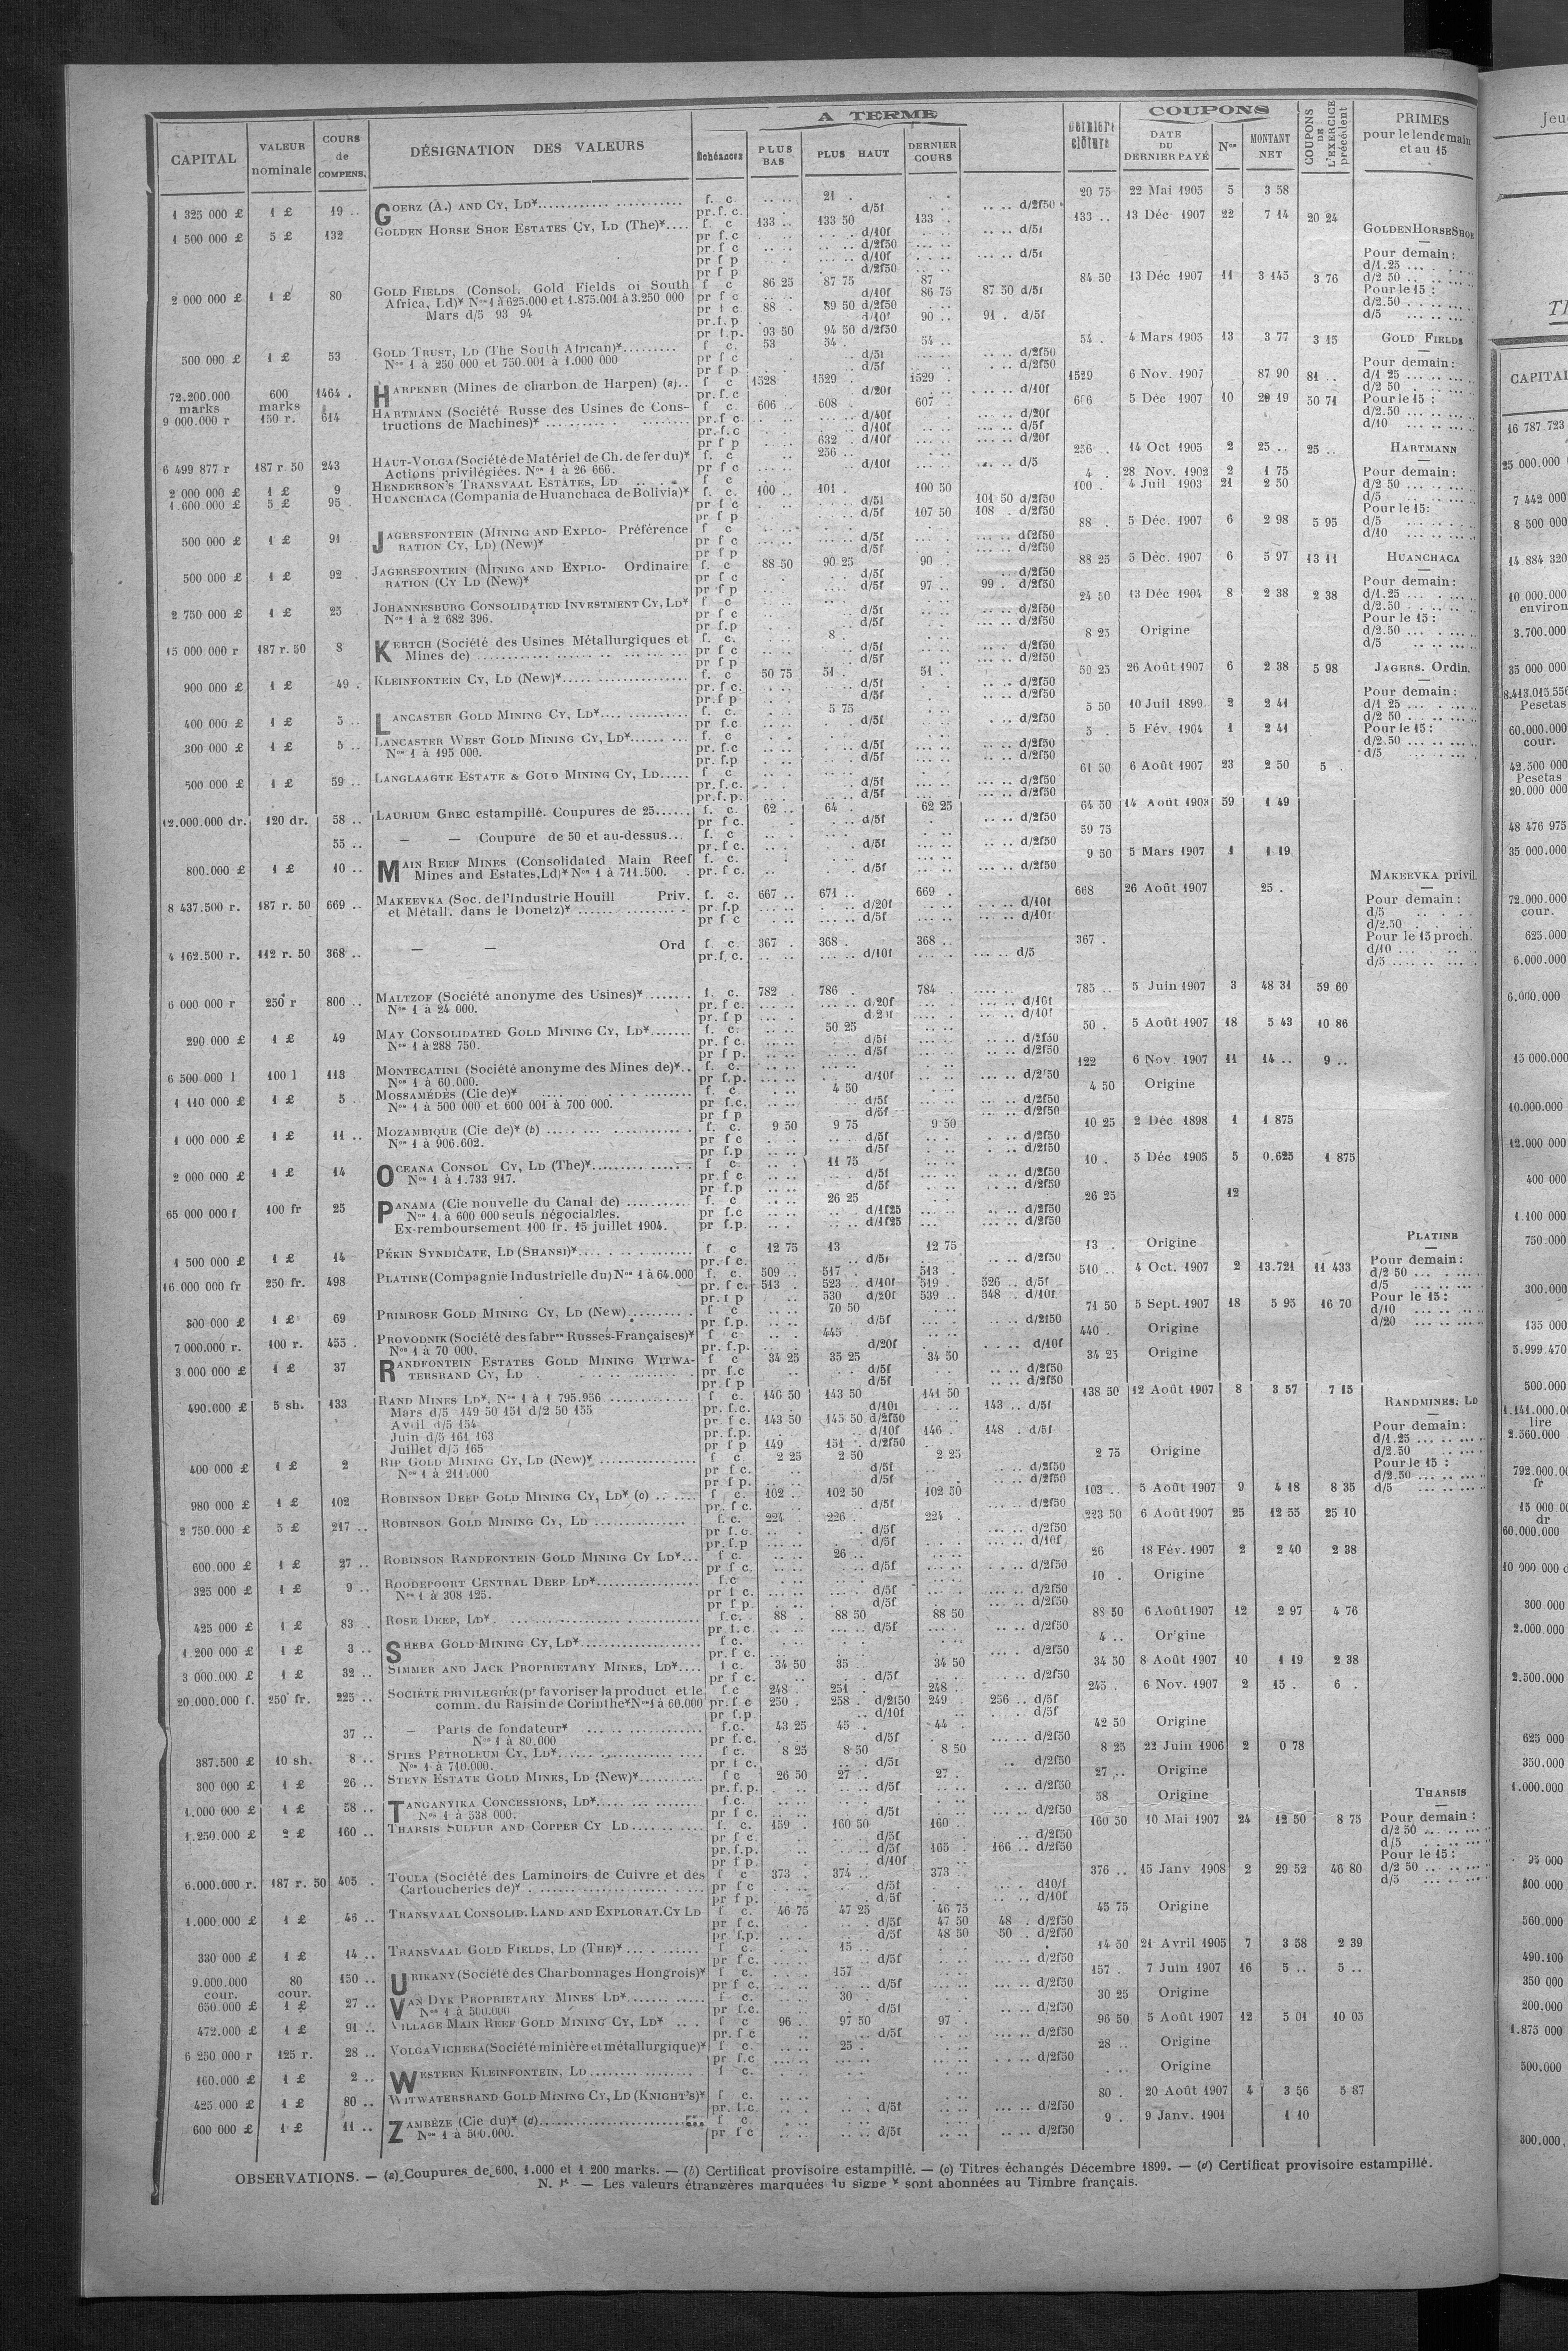 A TERME
COUPONS
CAPITAL
VALEUR nominale
COURS de COMPENS.
DÉSIGNATION DES VALEURS
Échéances
PLUS BAS
PLUS HAUT
DERNIER COURS
DERNIÈRE clôture
DATE DU DERNIER PAYÉ
Nos
MONTANT NET
COUPONS DE L'EXERCICE précédent
PRIMES pour le lendemain et au 15
1 325 000 £ 1 £ 19 .. GOERZ (A.) AND CY, LD* f. c 21 20 75 22 Mai 1905 5 3 58
pr. f. c. d/5f d/2f50
1 500 000 £ 5 £ 132 GOLDEN HORSE SHOE ESTATES CY, LD (The)* f c 133 .. 133 50 133 .. 133 .. 13 Déc 1907 22 7 14 20 24
pr f c d/10f d/5f
pr f c d/2f50
pr f p d/10f d/5f
pr f p d/2f50
2 000 000 £ 1 £ 80 GOLD FIELDS (Consol. Gold Fields of South f c 86 25 87 75 87 84 50 13 Déc 1907 11 3 145 3 76
Africa, Ld)* Nos 1 à 625.000 et 1.875.001 à 3.250 000 pr f c d/10f 86 75 87 50 d/5f
Mars d/5 93 94 pr f c 88 . 89 50 d/2f50
pr. f. p d/10f 90 .. 91 . d/5f
pr f. p. 93 50 94 50 d/2f50
500 000 £ 1 £ 53 GOLD TRUST, LD (The South African)* f c. 53 54 . 54 .. 54 . 4 Mars 1905 13 3 77 3 15
Nos 1 à 250 000 et 750.001 à 1.000 000 pr f c d/5f d/2f50
pr f p d/5f d/2f50
72.200.000 marks 600 marks 1464 . HARPENER (Mines de charbon de Harpen) (a).. f c 1528 1529 1529 . 1529 6 Nov. 1907 87 90 81 ..
pr. f. c d/20f d/10f
9 000.000 r 150 r. 614 HARTMANN (Société Russe des Usines de Cons- f c. 606 .. 608 . 607 . 606 5 Déc 1907 10 20 19 50 71
tructions de Machines)* pr f c. d/40f d/20f
pr. f. c d/10f d/5f
pr f p 632 . d/10f d/20f
6 499 877 r 187 r. 50 243 HAUT-VOLGA (Société de Matériel de Ch. de fer du)* f. c 256 .. 256 . 14 Oct 1905 2 25 .. 25 ..
Actions privilégiées. Nos 1 à 26 666. pr f c d/10f d/5
2 000 000 £ 1 £ 9 HENDERSON'S TRANSVAAL ESTATES, LD f c 4 28 Nov. 1902 2 1 75
1.600 000 £ 5 £ 95 . HUANCHACA (Compania de Huanchaca de Bolivia)* f. c. 100 .. 101 . 100 50 100 . 4 Juil 1903 21 2 50
pr f c d/5f 101 50 d/2f50
pr f p d/5f 107 50 108 . d/2f50
500 000 £ 1 £ 91 JAGERSFONTEIN (MINING AND EXPLO- Préférence f c 88 . 5 Déc. 1907 6 2 98 5 95
RATION CY, LD) (New)* pr f c d/5f d/2f50
pr f p d/5f d/2f50
500 000 £ 1 £ 92 . JAGERSFONTEIN (MINING AND EXPLO- Ordinaire f. c 88 50 90 25 90 . 88 25 5 Déc. 1907 6 5 97 13 11
RATION (CY LD (New)* pr f c d/5f d/2f50
pr f p d/5f 97 .. 99 . d/2f50
2 750 000 £ 1 £ 25 JOHANNESBURG CONSOLIDATED INVESTMENT CY, LD* f c 24 50 13 Déc 1904 8 2 38 2 38
Nos 1 à 2 682 396. pr f c d/5f d/2f50
pr f.p d/5f d/2f50
15 000 000 r 187 r. 50 8 KERTCH (Société des Usines Métallurgiques et f. c. 8 . 8 25 Origine
Mines de) pr f c d/5f d/2f50
pr f p d/5f d/2f50
900 000 £ 1 £ 49 . KLEINFONTEIN CY, LD (New)* f. c 50 75 51 . 51 . 50 25 26 Août 1907 6 2 38 5 98
pr. f c. d/5f d/2f50
pr. f p d/5f d/2f50
400 000 £ 1 £ 5 .. LANCASTER GOLD MINING CY, LD* f. c. 5 75 5 50 10 Juil 1899 2 2 41
pr f.c d/5f d/2f50
300 000 £ 1 £ 5 .. LANCASTER WEST GOLD MINING CY, LD* f. c 5 . 5 Fév. 1904 1 2 41
Nos 1 à 195 000. pr. f.c d/5f d/2f50
pr. f.p d/5f d/2f50
500 000 £ 1 £ 59 .. LANGLAAGTE ESTATE & GOLD MINING CY, LD f c. 61 50 6 Août 1907 23 2 50 5 .
pr. f. c. d/5f d/2f50
pr. f. p. d/5f d/2f50
12.000.000 dr. 120 dr. 58 .. LAURIUM GREC estampillé. Coupures de 25 f. c. 62 .. 64 . 62 25 64 50 14 Août 1903 59 1 49
pr f c. d/5f d/2f50
55 .. — — Coupure de 50 et au-dessus f. c 59 75
pr. f c. d/5f d/2f50
800.000 £ 1 £ 10 .. MAIN REEF MINES (Consolidated Main Reef f. c. 9 50 5 Mars 1907 1 1 19
Mines and Estates, Ld)* Nos 1 à 711.500. pr. f c. d/5f d/2f50
8 437.500 r. 187 r. 50 669 .. MAKEEVKA (Soc. de l'Industrie Houill Priv. f. c. 667 .. 671 .. 669 . 668 26 Août 1907 25 .
et Métall. dans le Donetz)* pr f.p d/20f d/10f
pr f c d/5f d/10f
4 162.500 r. 112 r. 50 368 .. — — Ord f c. 367 . 368 . 368 .. 367 .
pr. f. c. d/10f d/5
6 000 000 r 250 r 800 .. MALTZOF (Société anonyme des Usines)* f. c. 782 . 786 . 784 . 785 .. 5 Juin 1907 3 48 31 59 60
Nos 1 à 24 000. pr. f c. d/20f d/10f
pr. f p d/10f
290 000 £ 1 £ 49 MAY CONSOLIDATED GOLD MINING CY, LD* f c. 50 25 50 . 5 Août 1907 18 5 43 10 86
Nos 1 à 288 750. pr. f c. d/5f d/2f50
pr f p. d/5f d/2f50
6 500 000 l 100 l 113 MONTECATINI (Société anonyme des Mines de)* f. c. 122 6 Nov. 1907 11 14 .. 9 ..
Nos 1 à 60.000. pr f.p. d/10f d/2f50
1 110 000 £ 1 £ 5 . MOSSAMÉDÈS (Cie de)* f. c 4 50 4 50 Origine
Nos 1 à 500 000 et 600 001 à 700 000. pr f.c. d/5f d/2f50
pr f p d/5f d/2f50
1 000 000 £ 1 £ 11 .. MOZAMBIQUE (Cie de)* (b) f. c. 9 50 9 75 9 50 10 25 2 Déc 1898 1 1 875
Nos 1 à 906.602. pr f c d/5f d/2f50
pr f.p d/5f d/2f50
2 000 000 £ 1 £ 14 OCEANA CONSOL CY, LD (The)* f c 11 75 10 . 5 Déc 1905 5 0.625 1 875
Nos 1 à 1.733 917. pr. f c d/5f d/2f50
pr f.p d/5f d/2f50
65 000 000 f 100 fr 25 PANAMA (Cie nouvelle du Canal de) f. c 26 25 26 25 12
Nos 1 à 600 000 seuls négociables. pr f.c d/1f25 d/2f50
Ex-remboursement 100 fr. 15 juillet 1904. pr f.p. d/1f25 d/2f50
1 500 000 £ 1 £ 14 PÉKIN SYNDICATE, LD (SHANSI)* f c 12 75 13 12 75 13 . Origine
pr. f c. d/5f d/2f50
16 000 000 fr 250 fr. 498 PLATINE (Compagnie Industrielle du) Nos 1 à 64.000 f. c. 509 .. 517 . 513 . 510 .. 4 Oct. 1907 2 13.721 11 433
pr. f c. 513 . 523 d/10f 519 . 526 .. d/5f
pr. f p 530 d/20f 539 .. 548 . d/10f
300 000 £ 1 £ 69 PRIMROSE GOLD MINING CY, LD (New) f c 70 50 71 50 5 Sept. 1907 18 5 95 16 70
pr f.p. d/5f d/2f50
7 000.000 r. 100 r. 455 . PROVODNIK (Société des fabres Russes-Françaises)* f c 445 440 . Origine
Nos 1 à 70 000. pr. f.p. d/20f d/10f
3 000.000 £ 1 £ 37 RANDFONTEIN ESTATES GOLD MINING WITWA- f c 34 25 35 25 34 50 34 25 Origine
TERSRAND CY, LD pr f.c d/5f d/2f50
pr f p d/5f d/2f50
490.000 £ 5 sh. 133 RAND MINES LD*, Nos 1 à 1 795.956 f c. 140 50 143 50 141 50 138 50 12 Août 1907 8 3 57 7 15
Mars d/5 149 50 151 d/2 50 155 pr. f.c. d/10f 143 .. d/5f
Avril d/5 154 pr f c. 143 50 145 50 d/2f50
Juin d/5 161 163 pr. f.p. d/10f 146 . 148 . d/5f
Juillet d/5 165 pr f p 149 151 . d/2f50
400 000 £ 1 £ 2 RIP GOLD MINING CY, LD (New)* f c 2 25 2 50 2 25 2 75 Origine
Nos 1 à 211.000 pr f c. d/5f d/2f50
pr f p. d/5f d/2f50
980 000 £ 1 £ 102 ROBINSON DEEP GOLD MINING CY, LD* (c) f c. 102 . 102 50 102 50 103 .. 5 Août 1907 9 4 18 8 35
pr. f c. d/5f d/2f50
2 750.000 £ 5 £ 217 .. ROBINSON GOLD MINING CY, LD f. c. 224 226 . 224 . 223 50 6 Août 1907 25 12 55 25 10
pr f.c. d/5f d/2f50
pr. f.p d/5f d/10f
600.000 £ 1 £ 27 .. ROBINSON RANDFONTEIN GOLD MINING CY LD* f c. 26 .. 26 18 Fév. 1907 2 2 40 2 38
pr f c. d/5f d/2f50
325 000 £ 1 £ 9 .. ROODEPOORT CENTRAL DEEP LD* f.c 10 . Origine
Nos 1 à 308 125. pr f c. d/5f d/2f50
pr f p. d/5f d/2f50
425 000 £ 1 £ 83 .. ROSE DEEP, LD* f.c. 88 . 88 50 88 50 88 50 6 Août 1907 12 2 97 4 76
pr. f. c. d/5f d/2f50
1.200 000 £ 1 £ 3 .. SHEBA GOLD MINING CY, LD* f c. 4 .. Origine
pr. f c. d/2f50
3 000.000 £ 1 £ 32 .. SIMMER AND JACK PROPRIETARY MINES, LD* f c. 34 50 35 34 50 34 50 8 Août 1907 10 1 19 2 38
pr f c. d/5f d/2f50
20.000.000 f. 250 fr. 225 .. SOCIÉTÉ PRIVILEGIÉE (pr favoriser la product et le f.c 248 . 251 . 248 .. 245 . 6 Nov. 1907 2 15 . 6 .
comm. du Raisin de Corinthe* Nos 1 à 60.000 pr. f c 250 . 258 . d/2f50 249 . 256 .. d/5f
pr f.p d/10f d/5f
37 .. — Parts de fondateur* f.c. 43 25 45 . 44 . 42 50 Origine
Nos 1 à 80.000 pr f.c. d/5f d/2f50
387.500 £ 10 sh. 8 .. SPIES PÉTROLEUM CY, LD* f c. 8 25 8 50 8 50 8 25 22 Juin 1906 2 0 78
Nos 1 à 710.000. pr f c. d/5f d/2f50
300 000 £ 1 £ 26 .. STEYN ESTATE GOLD MINES, LD (New)* f c 26 50 27 . 27 . 27 .. Origine
pr. f. p. d/5f d/2f50
1.000.000 £ 1 £ 58 .. TANGANYIKA CONCESSIONS, LD* f.c. 58 Origine
Nos 1 à 538 000. pr f c. d/5f d/2f50
1.250.000 £ 2 £ 160 .. THARSIS SULFUR AND COPPER CY LD f. c. 159 . 160 50 160 .. 160 50 10 Mai 1907 24 12 50 8 75
pr f c. d/5f d/2f50
pr. f.p. d/5f 165 . 166 .. d/2f50
pr f p. d/10f
6.000.000 r. 187 r. 50 405 . TOULA (Société des Laminoirs de Cuivre et des f c 373 . 374 .. 373 .. 376 .. 15 Janv 1908 2 29 52 46 80
Cartoucheries de)* pr f c d/5f d10/f
pr f p. d/5f d/10f
1.000.000 £ 1 £ 46 .. TRANSVAAL CONSOLID. LAND AND EXPLORAT. CY LD f c. 46 75 47 25 46 75 45 75 Origine
pr f c. d/5f 47 50 48 . d/2f50
pr f.p. d/5f 48 50 50 . d/2f50
330 000 £ 1 £ 14 .. TRANSVAAL GOLD FIELDS, LD (THE)* f c. 15 .. 14 50 21 Avril 1905 7 3 58 2 39
pr f c. d/5f d/2f50
9.000.000 cour. 80 cour. 150 .. URIKANY (Société des Charbonnages Hongrois)* f c. 157 157 . 7 Juin 1907 16 5 .. 5 ..
pr f c. d/5f d/2f50
650 000 £ 1 £ 27 .. VAN DYK PROPRIETARY MINES LD* f c. 30 . 30 25 Origine
Nos 1 à 500.000 pr f.c. d/5f d/2f50
472.000 £ 1 £ 91 .. VILLAGE MAIN REEF GOLD MINING CY, LD* f c 96 . 97 50 97 . 96 50 5 Août 1907 12 5 01 10 05
pr. f c d/5f d/2f50
6 250 000 r 125 r. 28 .. VOLGA VICHERA (Société minière et métallurgique)* f c. 25 . 28 .. Origine
pr f.c d/2f50
160.000 £ 1 £ 2 .. WESTERN KLEINFONTEIN, LD f c. Origine
425.000 £ 1 £ 80 .. WITWATERSRAND GOLD MINING CY, LD (KNIGHT'S)* f c. 80 . 20 Août 1907 4 3 56 5 87
pr. f.c. d/5f d/2f50
600 000 £ 1 £ 11 .. ZAMBÈZE (Cie du)* (d) f c. 9 . 9 Janv. 1901 1 10
Nos 1 à 500.000. pr f c d/5f d/2f50
GOLDEN HORSE SHOE
Pour demain:
d/1.25
d/2 50
Pour le 15 :
d/2.50
d/5
GOLD FIELDS
Pour demain:
d/1 25
d/2 50
Pour le 15 :
d/2.50
d/10
HARTMANN
Pour demain:
d/2 50
d/5
Pour le 15:
d/5
d/10
HUANCHACA
Pour demain:
d/1.25
d/2.50
Pour le 15 :
d/2.50
d/5
JAGERS. Ordin.
Pour demain:
d/1 25
d/2 50
Pour le 15 :
d/2.50
d/5
MAKEEVKA privil.
Pour demain:
d/5
d/2.50
Pour le 15 proch.
d/10
d/5
PLATINE
Pour demain:
d/2 50
d/5
Pour le 15 :
d/10
d/20
RANDMINES, LD
Pour demain:
d/1.25
d/2.50
Pour le 15 :
d/2.50
d/5
THARSIS
Pour demain :
d/2 50
d/5
Pour le 15 :
d/2 50
d/5
OBSERVATIONS. — (a) Coupures de 600, 1.000 et 1 200 marks. — (b) Certificat provisoire estampillé. — (c) Titres échangés Décembre 1899. — (d) Certificat provisoire estampillé.
N. B. — Les valeurs étrangères marquées du signe * sont abonnées au Timbre français.
Jeu
CAPITAL
16 787 723
25.000.000
7 442 000
8 500 000
14 884 320
10 000.000
environ
3.700.000
35 000 000
8.413.015.556
Pesetas
60.000.000
cour.
42.500 000
Pesetas
20.000 000
48 476 975
35 000.000
72.000.000
cour.
625.000
6.000.000
6.000.000
15 000.000
10.000.000
12.000 000
400 000
1.100 000
750.000
300.000
135 000
5.999.470
500.000
1.141.000.00
lire
2.560.000
792.000.00
fr
15 000 00
dr
60.000.000
10 000 000 d
300 000
2.000.000
2.500.000
625 000
350.000
1.000.000
95 000
800 000
560.000
490.100
350 000
200.000
1.875 000
500.000
300.000